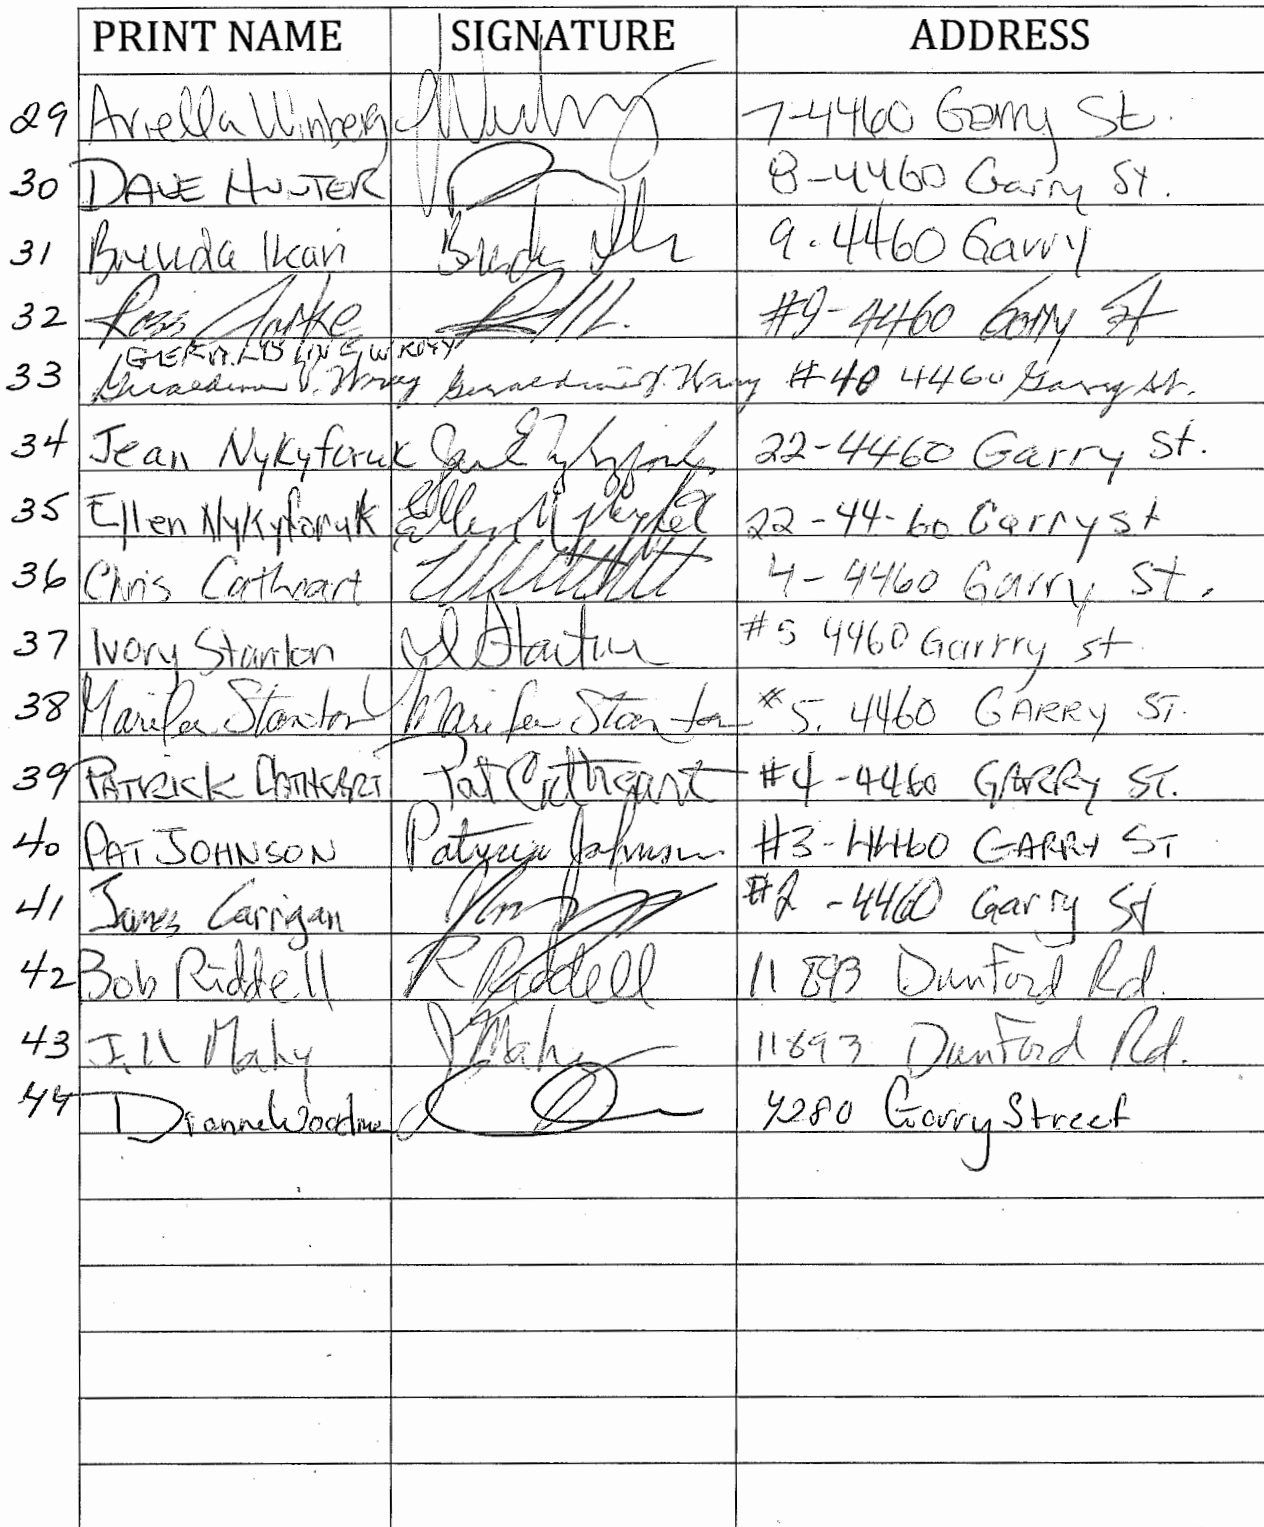 PRINT NAME SIGNATURE ADDRESS
29 Ariella Winberg 7-4460 Garry St.
30 DAVE HUNTER 8-4460 Garry St.
31 Brenda Ikari Brenda 9-4460 Garry
32 Ross Clarke #9-4460 Garry St
GERALDINE WRAY
33 Geraldine V. Wray Geraldine V. Wray #40 4460 Garry St.
34 Jean Nykyforuk Jean Nykyforuk 22-4460 Garry St.
35 Ellen Nykyforuk Ellen Nykyforuk 22-44-60 Garry st
36 Chris Cathcart 4-4460 Garry St.
37 Ivory Stanton Stanton #5 4460 Garrry st
38 Marilee Stanton Marilee Stanton #5. 4460 GARRY ST.
39 PATRICK CATHCART Pat Cathcart #4-4460 GARRY ST.
40 PAT JOHNSON Patricia Johnson #3-4460 GARRY ST
41 James Carrigan #2-4460 Garry St
42 Bob Riddell R Riddell 11893 Dunford Rd.
43 Jill Mahy J Mahy 11893 Dunford Rd.
44 Dianne 4280 Garry Street